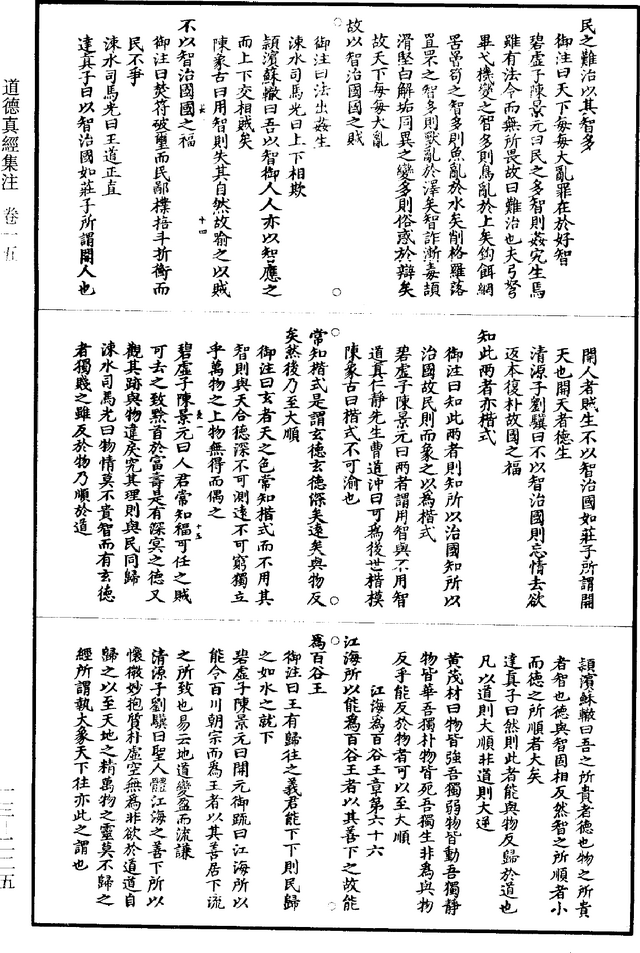 道德真經集注 卷一五
一三—二二五
民之難治以其智多
御注曰天下每每大亂罪在於好智
碧虛子陳景元曰民之多智則姦宄生焉
雖有法令而無所畏故曰難治也夫弓弩
畢弋機變之智多則鳥亂於上矣鉤餌網
罟罾笱之智多則魚亂於水矣削格羅落
罝罘之智多則獸亂於澤矣智詐漸毒頡
滑堅白解垢同異之變多則俗惑於辯矣
故天下每每大亂
故以智治國國之賊
御注曰法出姦生
涑水司馬光曰上下相欺
頴濱蘇轍曰吾以智御人人亦以智應之
而上下交相賊矣
陳象古曰用智則失其自然故喻之以賊
十四
不以智治國國之福
御注曰焚符破璽而民鄙樸掊斗折衡而
民不爭
涑水司馬光曰王道正直
達真子曰以智治國如莊子所謂開人也
開人者賊生不以智治國如莊子所謂開
天也開天者德生
清源子劉驥曰不以智治國則忘情去欲
返本復朴故國之福
知此兩者亦楷式
御注曰知此兩者則知所以治國知所以
治國故民則而象之以為楷式
碧虛子陳景元曰兩者謂用智與不用智
道真仁靜先生曹道沖曰可為後世楷模
陳象古曰楷式不可渝也
常知楷式是謂玄德玄德深矣遠矣與物反
矣然後乃至大順
御注曰玄者天之色常知楷式而不用其
智則與天合德深不可測遠不可窮獨立
乎萬物之上物無得而偶之
十五
碧虛子陳景元曰人君常知福可任之賊
可去之致黔首於富壽是有深冥之德又
觀其跡與物違戾究其理則與民同歸
涑水司馬光曰物情莫不貴智而有玄德
者獨賤之雖反於物乃順於道
頴濱蘇轍曰吾之所貴者德也物之所貴
者智也德與智固相反然智之所順者小
而德之所順者大矣
達真子曰然則此者能與物反歸於道也
凡以道則大順非道則大逆
黃茂材曰物皆強吾獨弱物皆動吾獨靜
物皆華吾獨朴物皆死吾獨生非為與物
反乎能反於物者可以至大順
江海為百谷王章第六十六
江海所以能為百谷王者以其善下之故能
為百谷王
御注曰王有歸往之義君能下下則民歸
之如水之就下
碧虛子陳景元曰開元御疏曰江海所以
能令百川朝宗而為王者以其善居下流
之所致也易云地道變盈而流謙
清源子劉驥曰聖人體江海之善下所以
懷微妙抱質朴虛空無為非欲於道道自
歸之以至天地之精萬物之靈莫不歸之
經所謂執大象天下往亦此之謂也